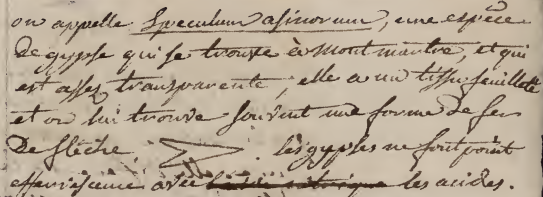 on appelle Speculum asinorum, une espèce
de gypse qui se trouve à Montmartre, et qui
est assez transparente; elle a un tissu feuilleté
et on lui trouve souvent une forme de fer
de flèche. les gypses ne font point
effervescence avec les acides.